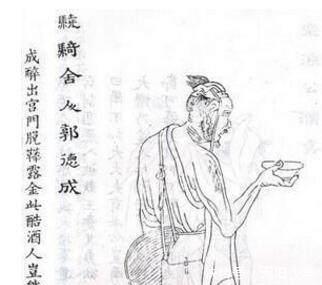 驍騎舍人郭德成
成醉出宮門脫鞾露金此酷酒人豈